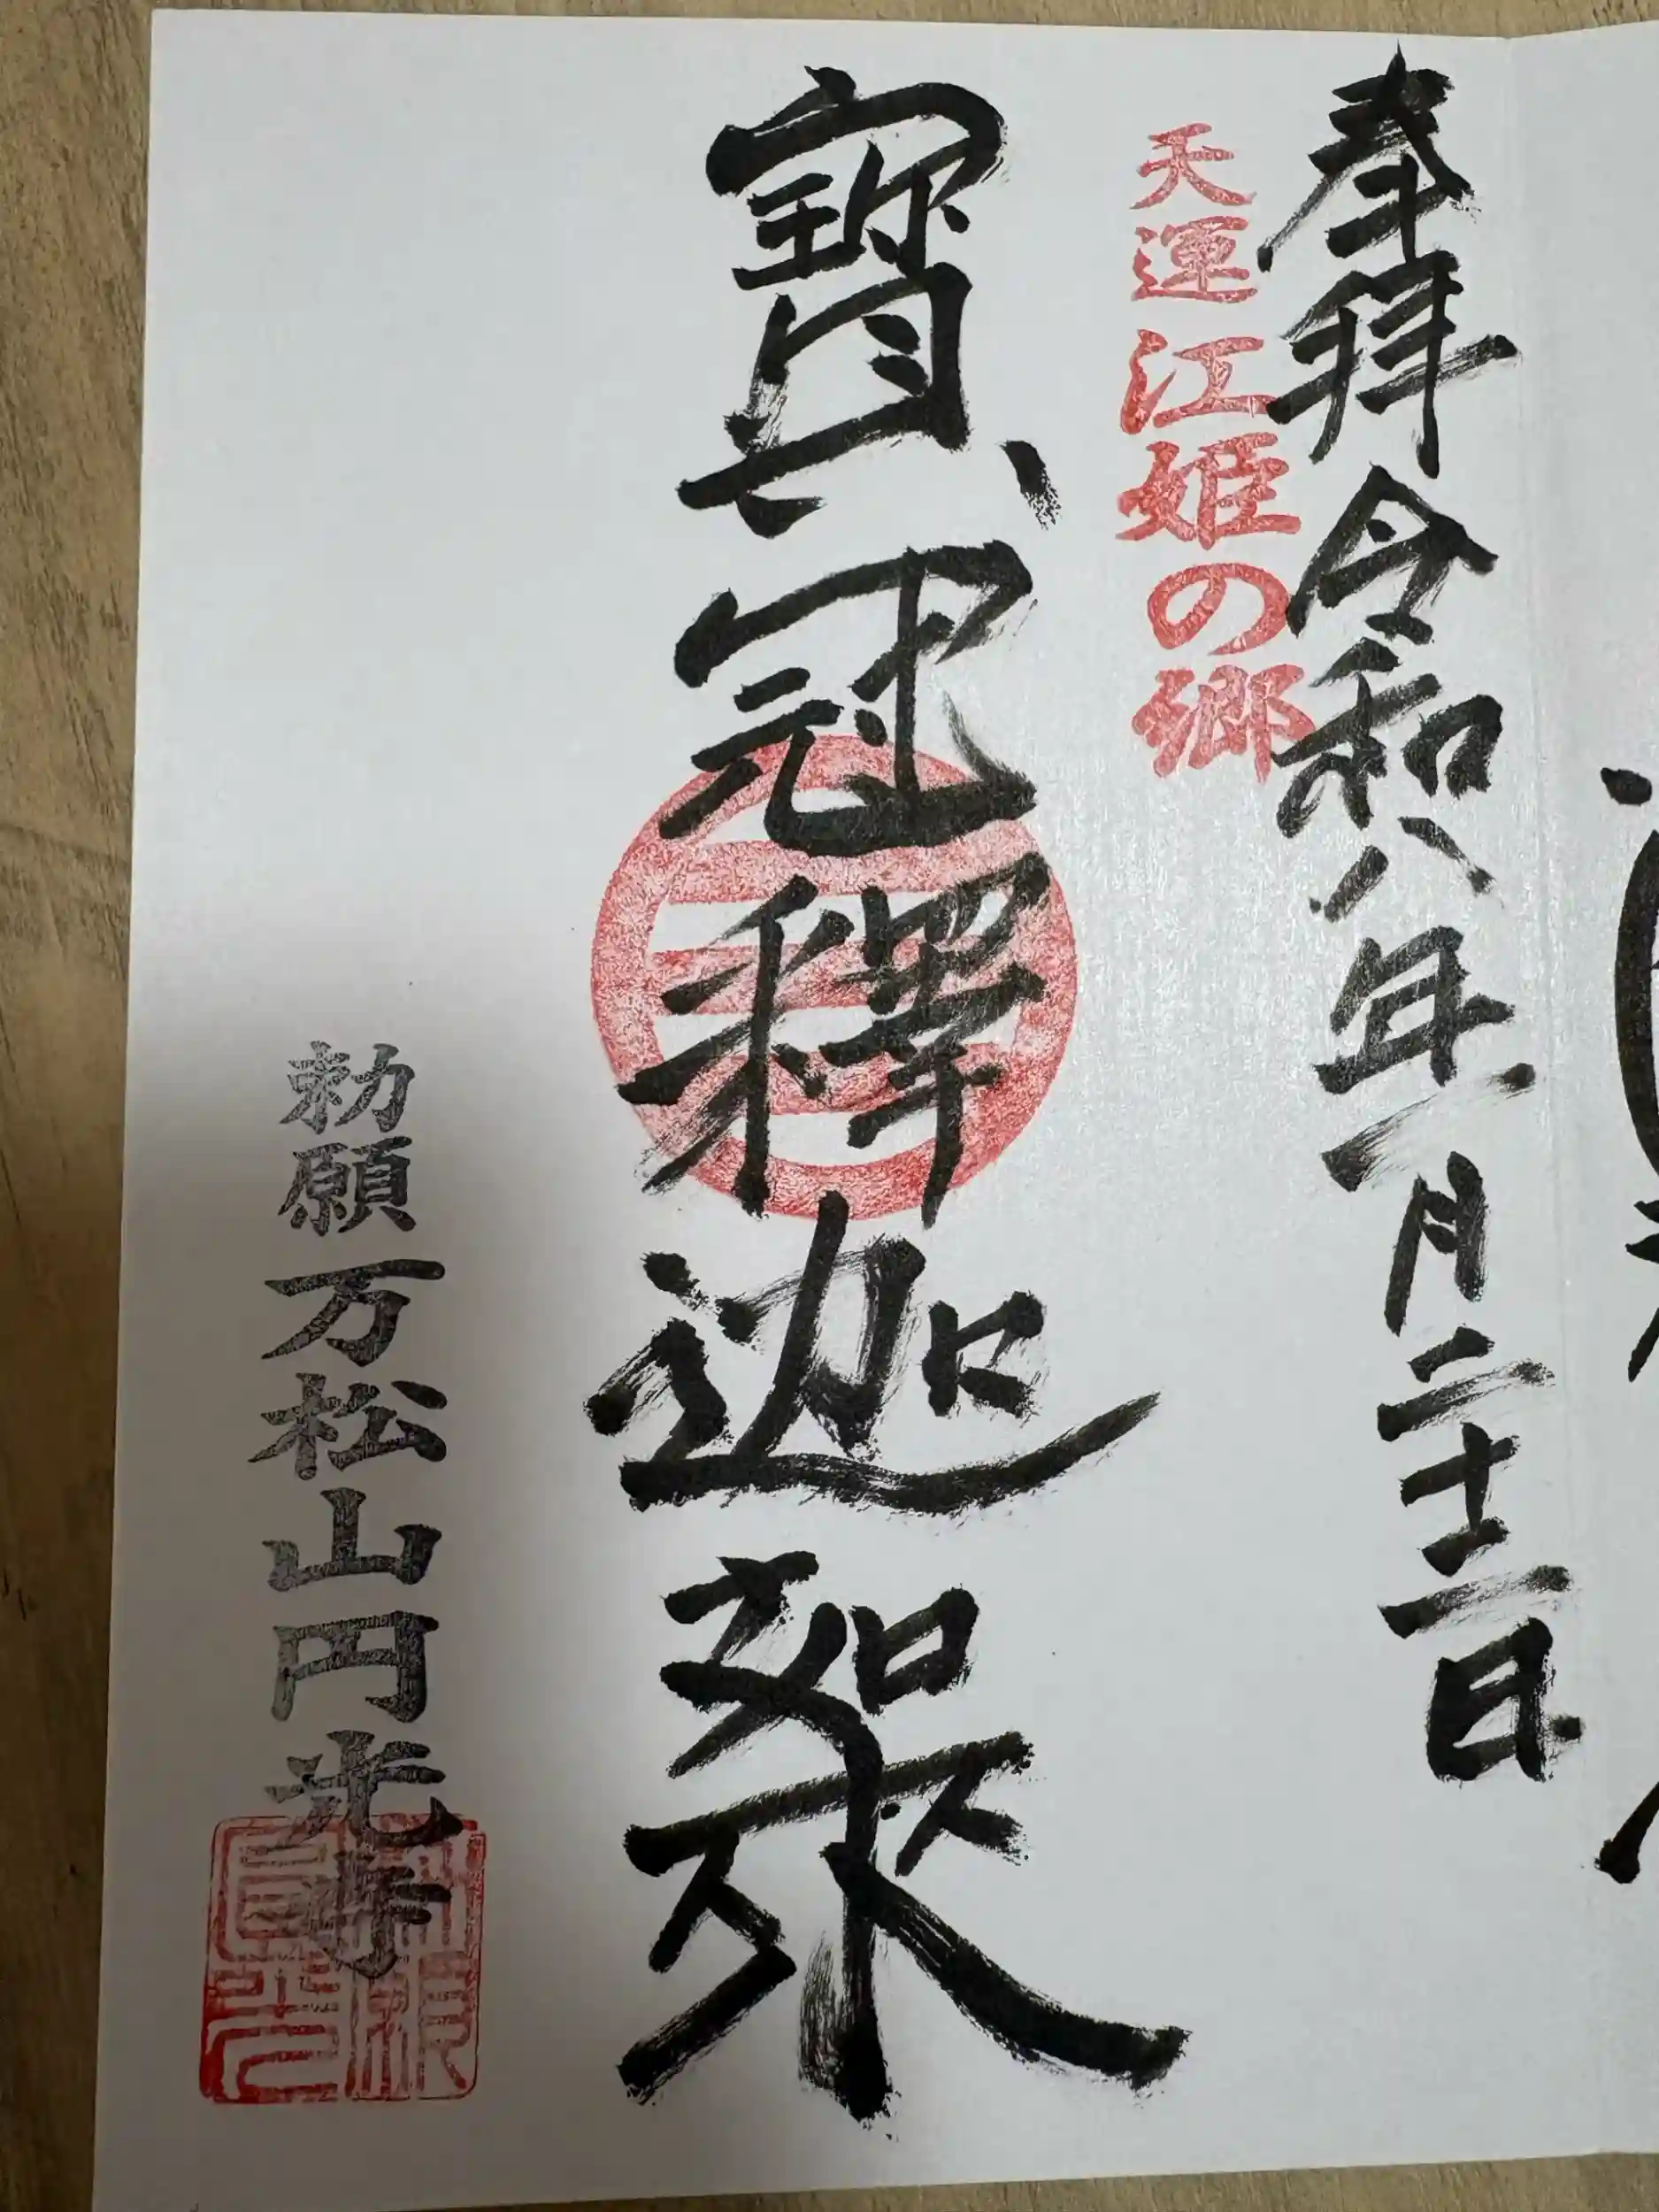 奉拝 令和八年一月二十二日
天運 江姫の郷
寶冠釋迦如来
勅願 万松山円光寺